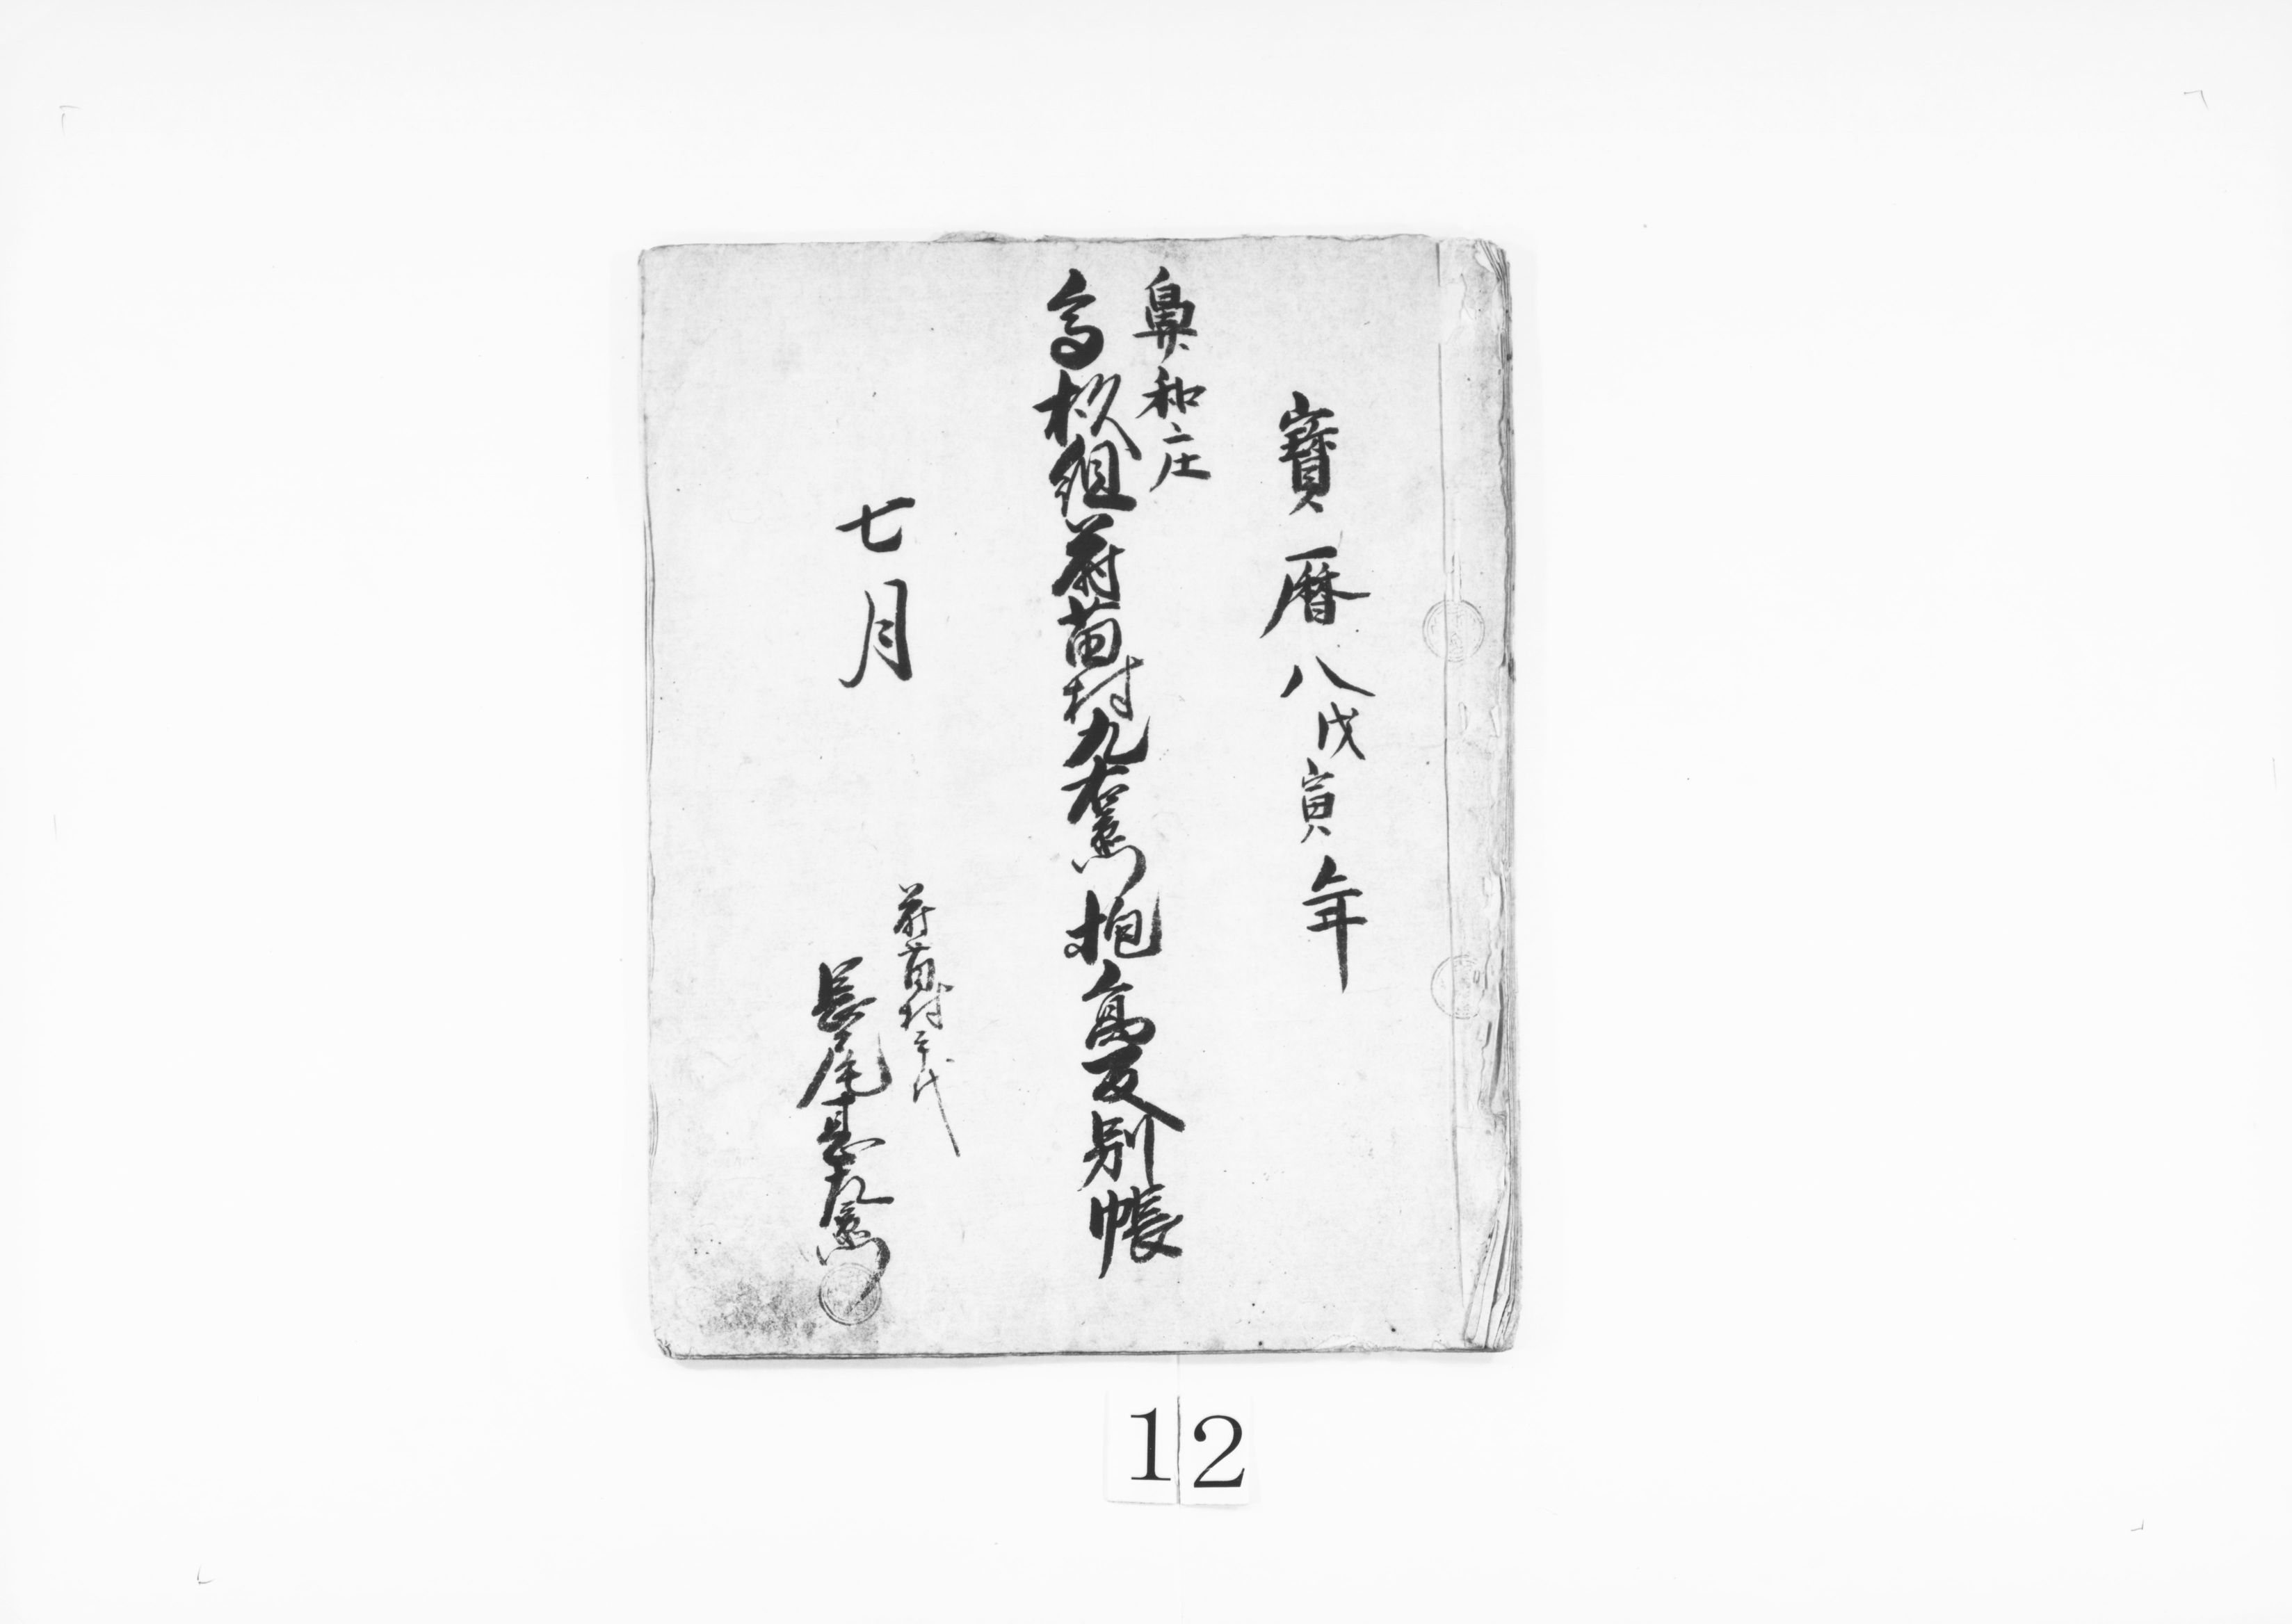 寶暦八戊寅年
鼻和庄
高杉組蒔苗村九右衛門抱高反別帳
七月
蒔苗村手代
長尾甚左衛門
12